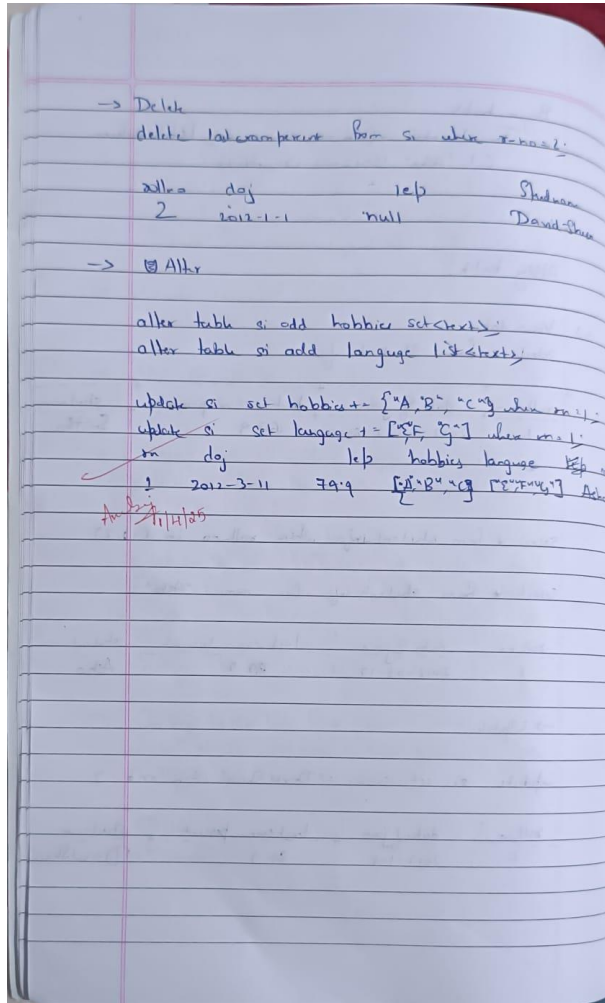 → Delete
delete lastexampercent from si where r-no=2;
rollno doj lep Studname
2 2012-1-1 null David-
→ Alter
alter table si add hobbies set<text>;
alter table si add languge list<text>;
update si set hobbies += {"A, "B", "C"} where rn=1;
update si set languge += ["E", F, "G"] where rn=1;
rn doj lep hobbies languge
1 2012-3-11 79.9 {"A", "B", "C"} ["E", "F" "G"]
1/4/25